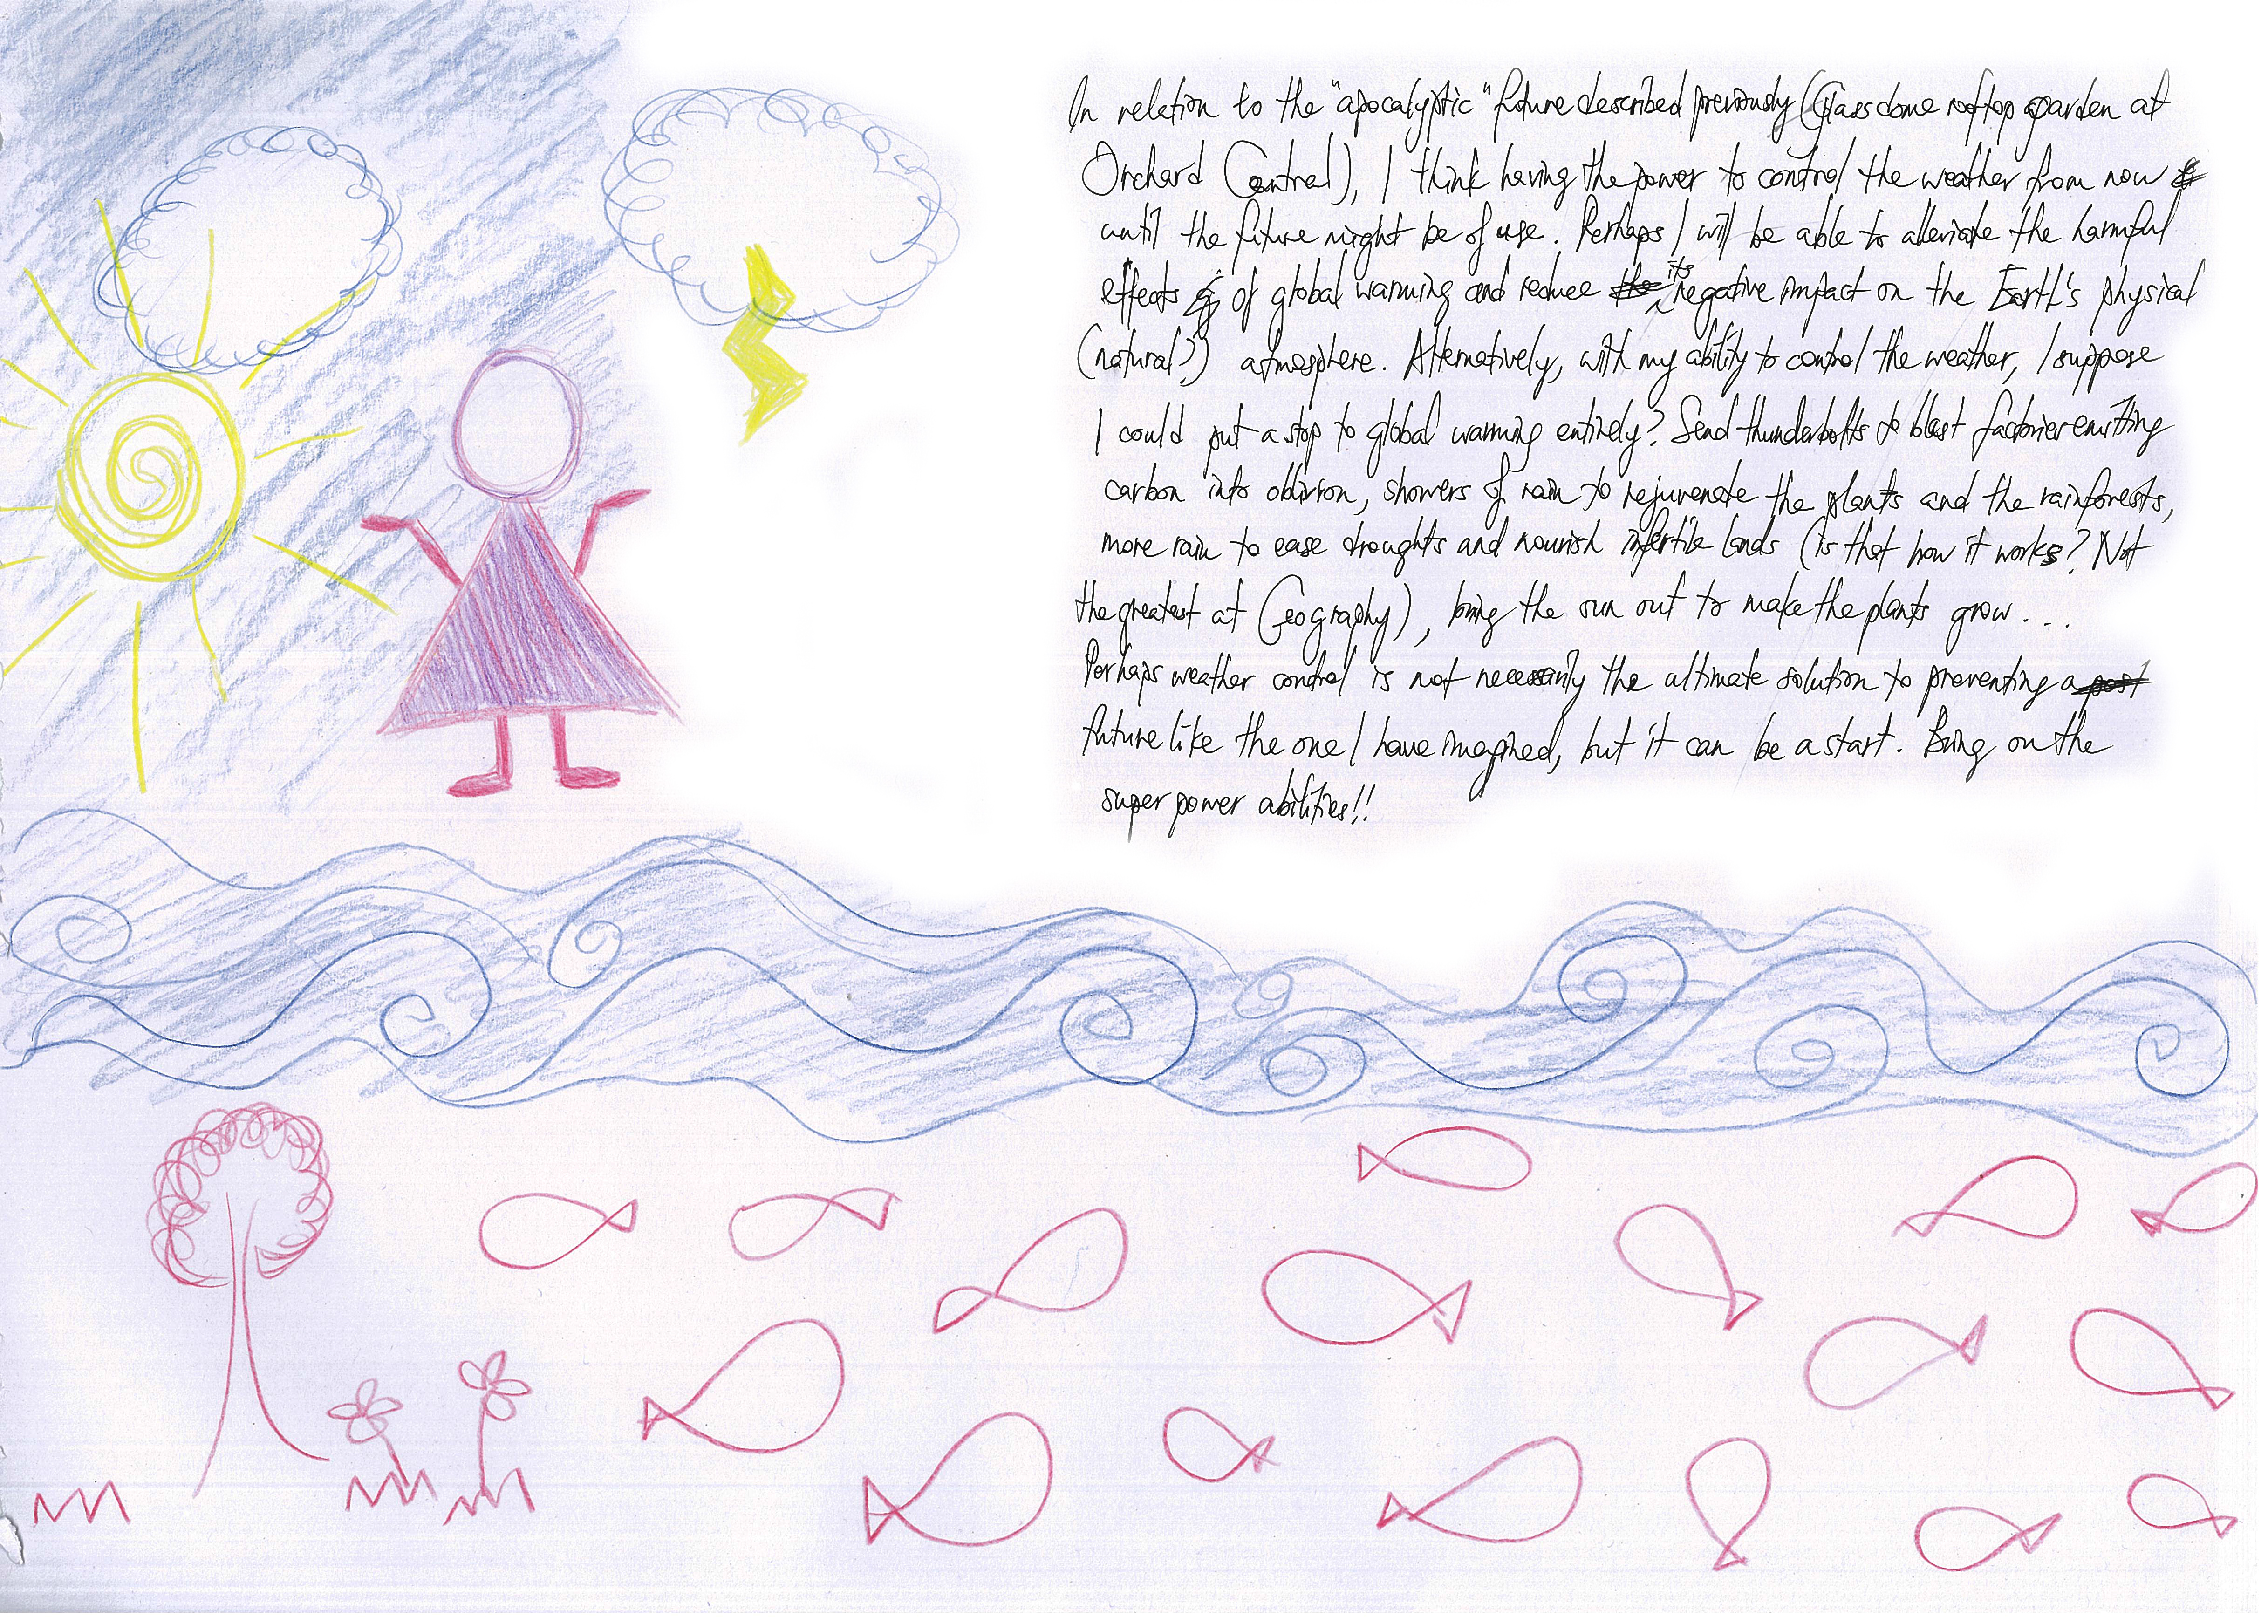 In relation to the "apocalyptic" future described previously (Glass dome rooftop garden at
Orchard Central), I think having the power to control the weather from now
until the future might be of use. Perhaps I will be able to alleviate the harmful
effects of global warming and reduce its negative impact on the Earth's physical
(natural?) atmosphere. Alternatively, with my ability to control the weather, I suppose
I could put a stop to global warming entirely? Send thunderbolts to blast factories emitting
carbon into oblivion, showers of rain to rejuvenate the plants and the rainforests,
more rain to ease droughts and nourish infertile lands (is that how it works? Not
the greatest at Geography), bring the sun out to make the plants grow...
Perhaps weather control is not necessarily the ultimate solution to preventing a
future like the one I have imagined, but it can be a start. Bring on the
super power abilities!!